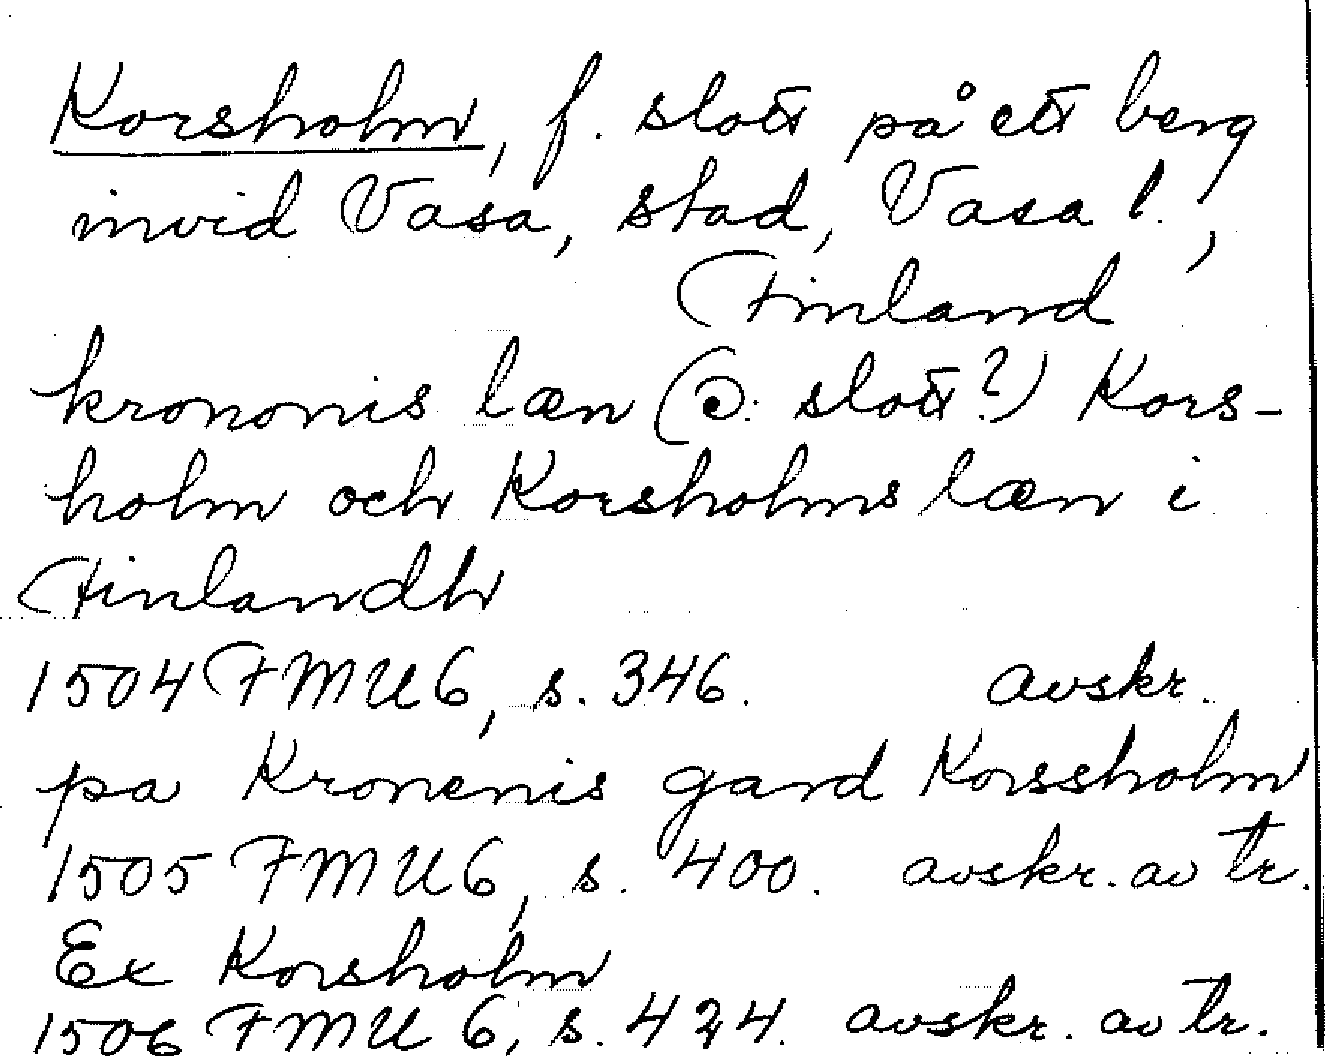 Korsholm, f. slott på ett berg
invid Vasa, stad, Vasa l.,
Finland
krononis læn (ɔ: slott?) Kors-
holm och Korsholms læn i
Finlandh
1504 FMU 6, s. 346. avskr.
pa Kronenis gard Korssholm
1505 FMU 6, s. 400. avskr. av tr.
Ex Korsholm
1506 FMU 6, s. 424. avskr. av tr.